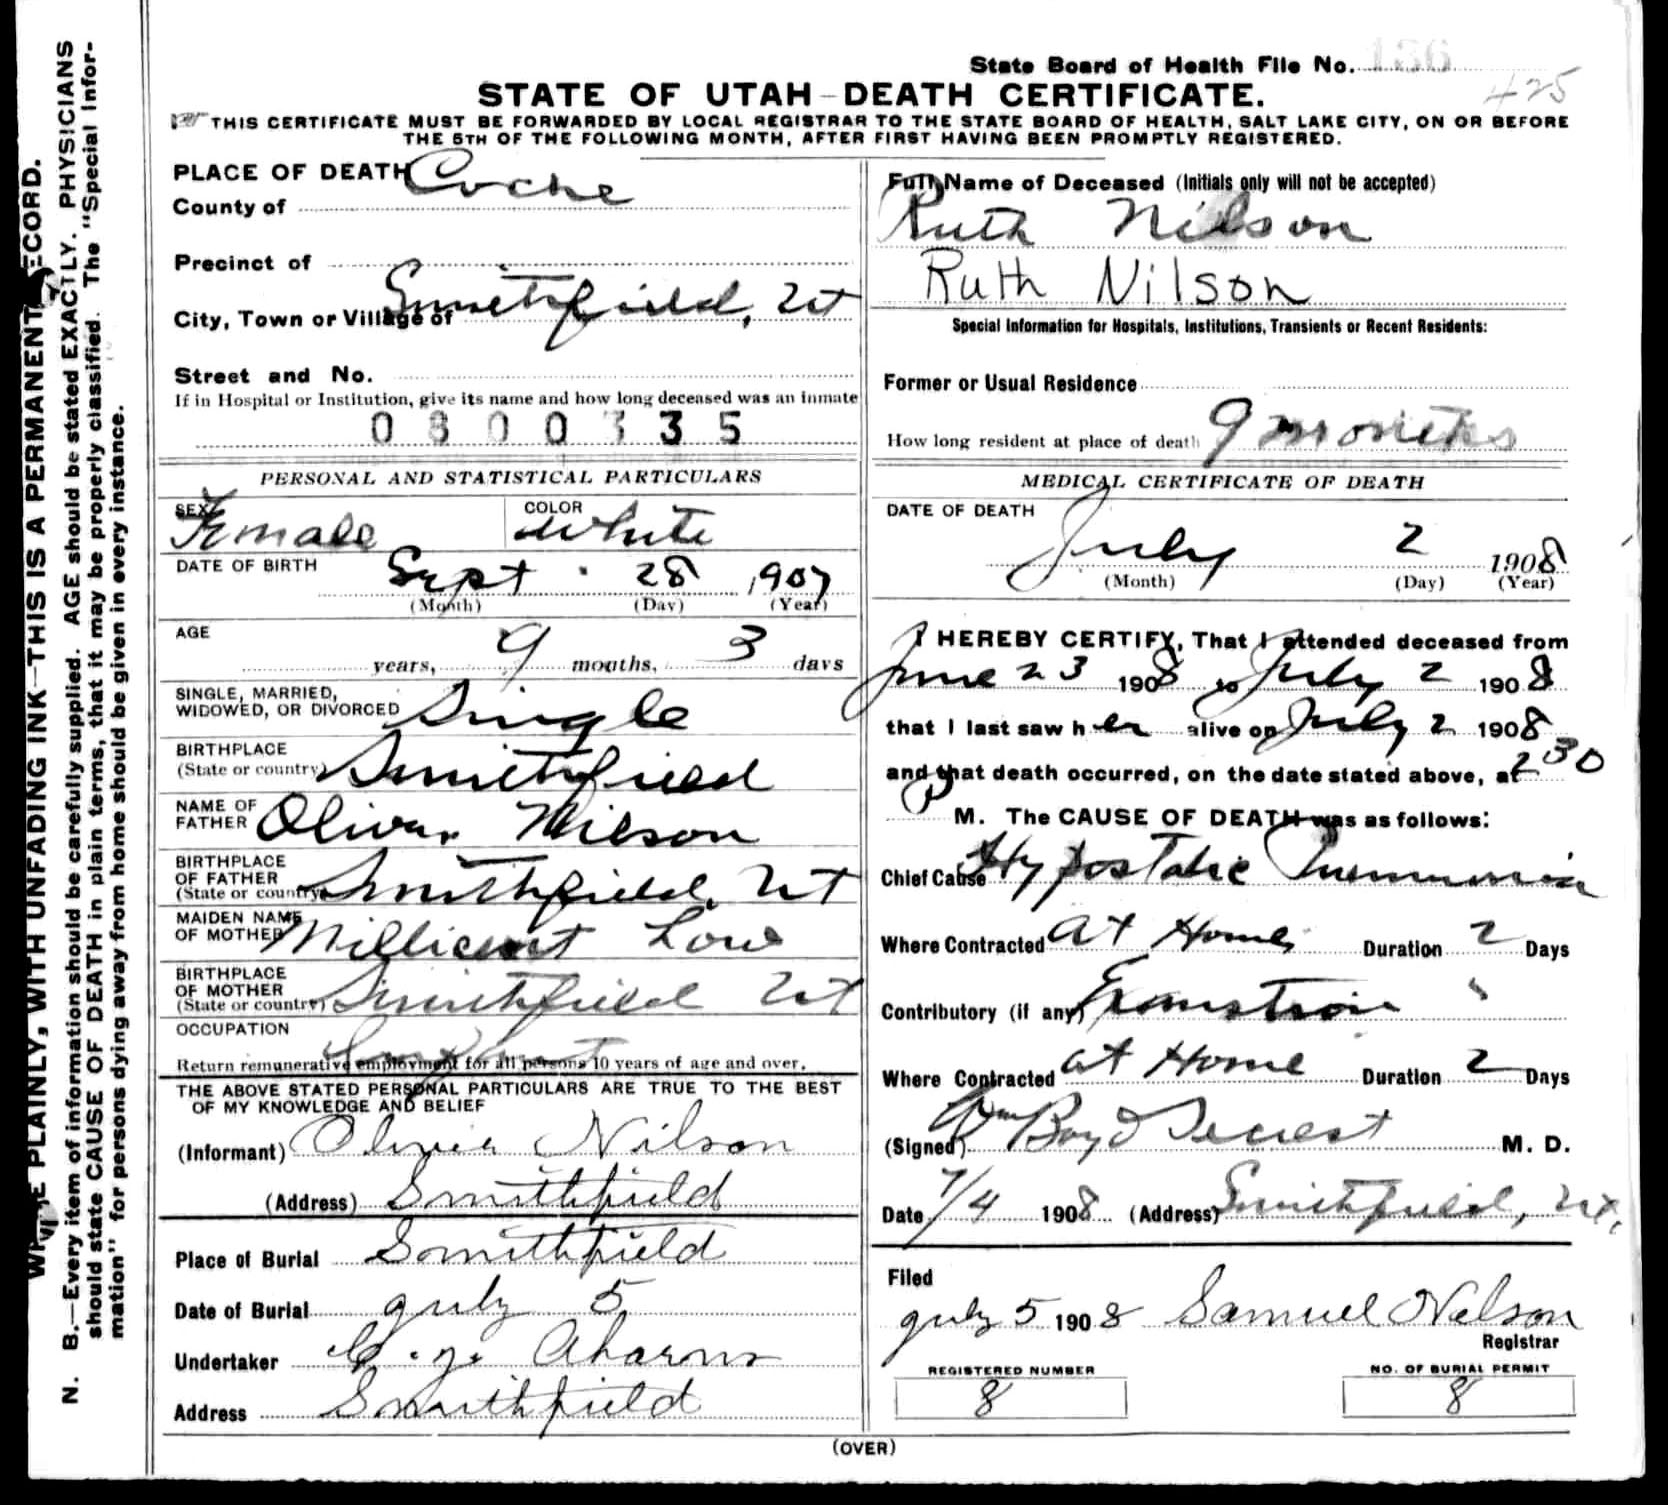 State Board of Health File No. 136
425
STATE OF UTAH-DEATH CERTIFICATE.
THIS CERTIFICATE MUST BE FORWARDED BY LOCAL REGISTRAR TO THE STATE BOARD OF HEALTH, SALT LAKE CITY, ON OR BEFORE
THE 5TH OF THE FOLLOWING MONTH, AFTER FIRST HAVING BEEN PROMPTLY REGISTERED.
WRITE PLAINLY, WITH UNFADING INK—THIS IS A PERMANENT RECORD.
N. B.—Every item of information should be carefully supplied. AGE should be stated EXACTLY. PHYSICIANS
should state CAUSE OF DEATH in plain terms, that it may be properly classified. The "Special Infor-
mation" for persons dying away from home should be given in every instance.
PLACE OF DEATH
County of Cache
Precinct of
City, Town or Village of Smithfield, Ut
Street and No.
If in Hospital or Institution, give its name and how long deceased was an inmate
0 8 0 0 3 3 5
PERSONAL AND STATISTICAL PARTICULARS
SEX Female COLOR White
DATE OF BIRTH Sept 28 1907
(Month) (Day) (Year)
AGE
years, 9 months, 3 days
SINGLE, MARRIED,
WIDOWED, OR DIVORCED Single
BIRTHPLACE
(State or country) Smithfield
NAME OF
FATHER Oliver Nilson
BIRTHPLACE
OF FATHER
(State or country) Smithfield, Ut
MAIDEN NAME
OF MOTHER Millicent Low
BIRTHPLACE
OF MOTHER
(State or country) Smithfield Ut
OCCUPATION
Infant
Return remunerative employment for all persons 10 years of age and over.
THE ABOVE STATED PERSONAL PARTICULARS ARE TRUE TO THE BEST
OF MY KNOWLEDGE AND BELIEF
(Informant) Oliver Nilson
(Address) Smithfield
Place of Burial Smithfield
Date of Burial July 5
Undertaker Aharns
Address Smithfield
Full Name of Deceased (Initials only will not be accepted)
Ruth Nilson
Ruth Nilson
Special Information for Hospitals, Institutions, Transients or Recent Residents:
Former or Usual Residence
How long resident at place of death 9 months
MEDICAL CERTIFICATE OF DEATH
DATE OF DEATH
July 2 1908
(Month) (Day) (Year)
I HEREBY CERTIFY, That I attended deceased from
June 23 1908 to July 2 1908
that I last saw her alive on July 2 1908
and that death occurred, on the date stated above, at 2 30
P M. The CAUSE OF DEATH was as follows:
Chief Cause Hypostatic Pneumonia
Where Contracted At Home Duration 2 Days
Contributory (if any) Exaustion "
Where Contracted at Home Duration 2 Days
(Signed) Wm Boyd Secrest M. D.
Date 7/4 1908 (Address) Smithfield, Ut.
Filed
July 5 1908 Samuel Nelson
Registrar
REGISTERED NUMBER NO. OF BURIAL PERMIT
8 8
(OVER)